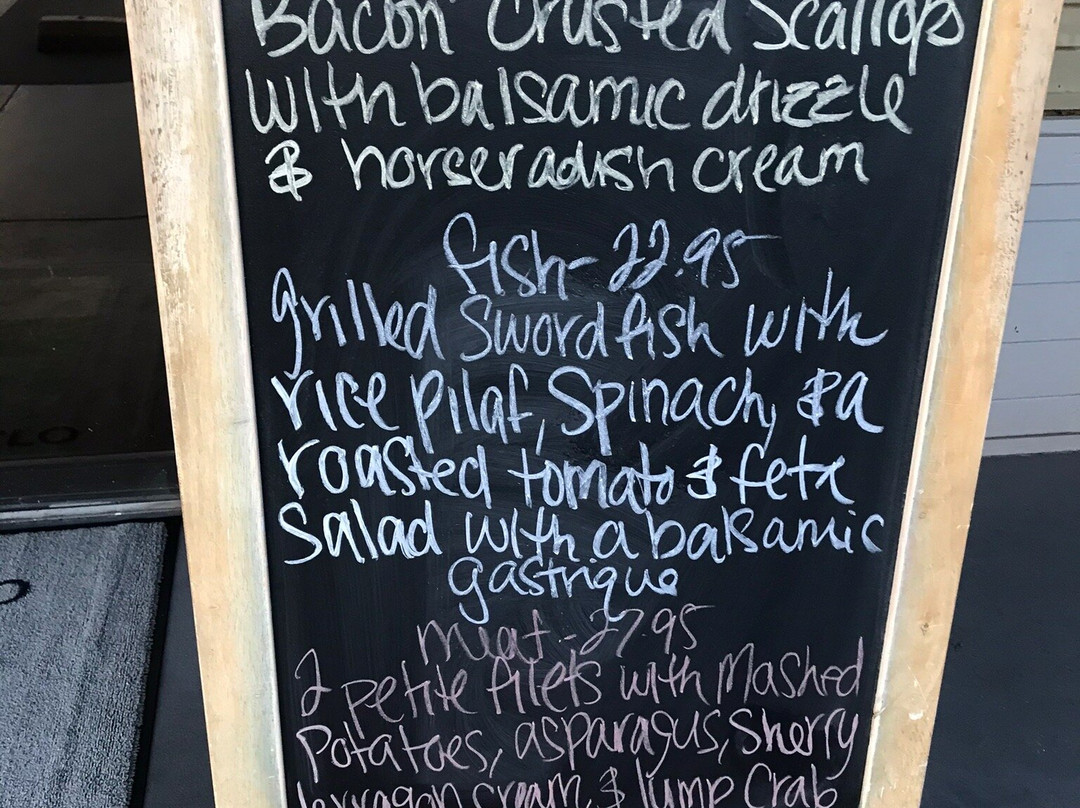 Bacon Crusted Scallops
with balsamic drizzle
& horseradish cream
fish - 22.95
grilled Swordfish with
rice pilaf, Spinach, & a
roasted tomato & feta
Salad with a balsamic
gastrique
meat - 27.95
2 petite filets with Mashed
Potatoes, asparagus, Sherry
tarragon cream, & lump Crab